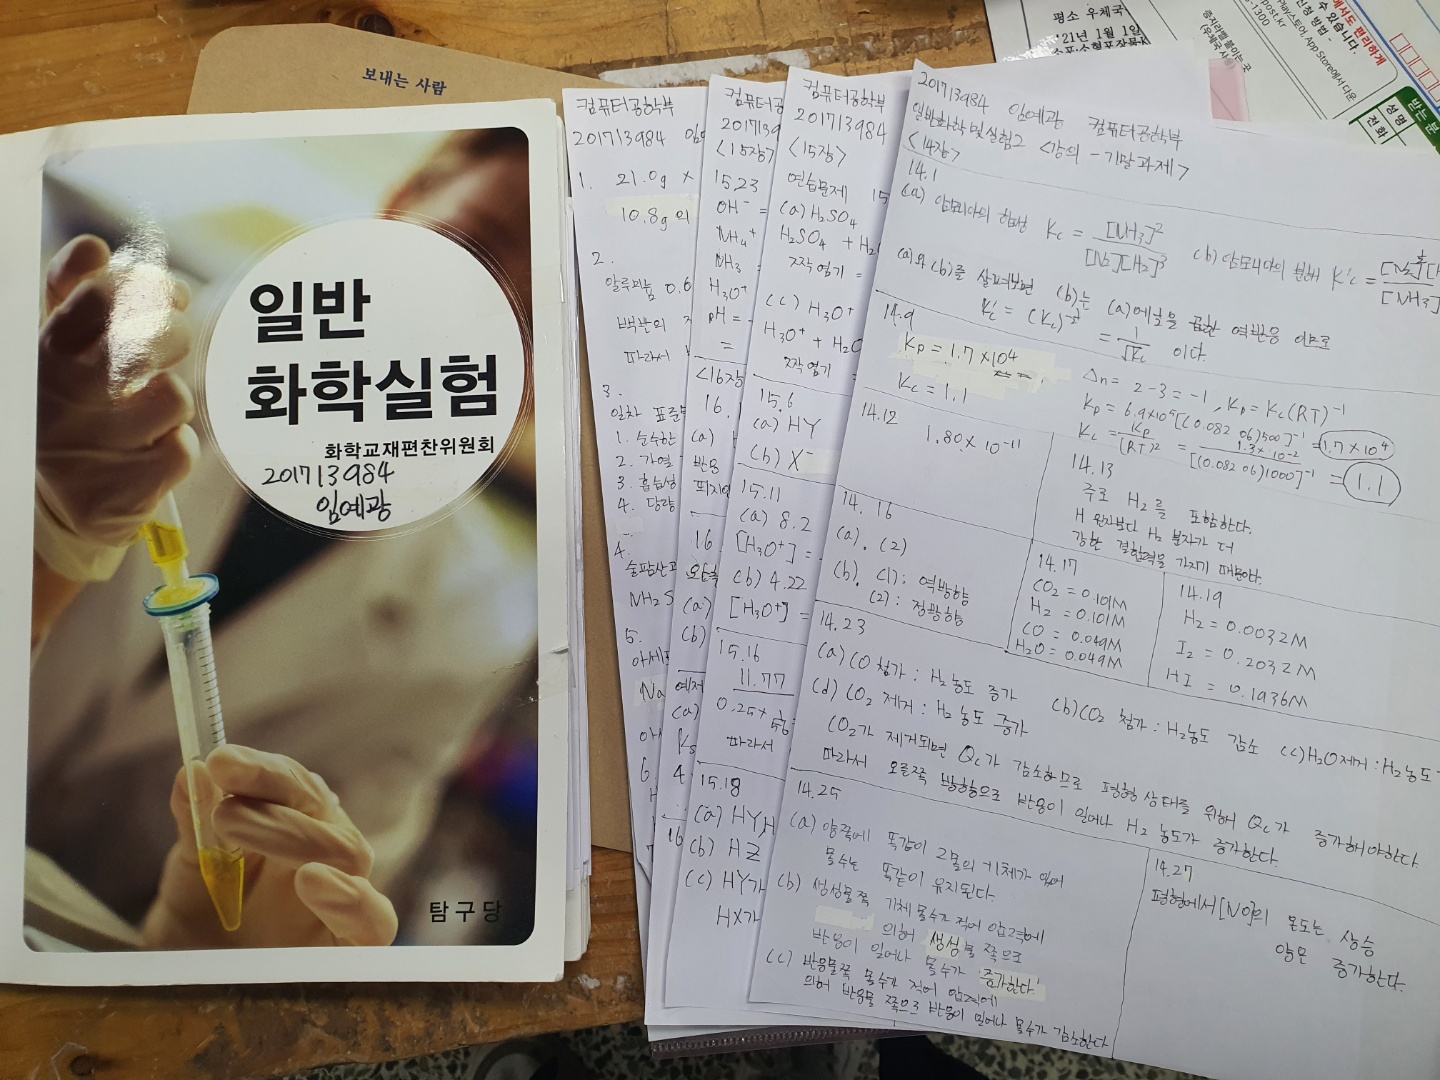 보내는 사람
일반
화학실험
화학교재편찬위원회
201713984
임예광
탐구당
평소 우체국
'21년 1월 1일
에서도 편리하게
수 있습니다.
신청 방법 -
post.kr
Play스토어, App Store에서 다운
-1300
받는 분
성명
전화
컴퓨터공학부
201713984
1. 21.0g ×
10.8g 의
2.
알루미늄 0.6
백분의
따라서
3.
일차 표준
1. 순수한
2. 가열
3. 흡습성
4. 당량
4.
술팜산
NH2S
5.
아세
Na
6
컴퓨터공
<15장>
15.23
OH⁻ =
NH4⁺
NH3 =
H3O⁺
pH =
=
<16장
16.
(a)
반응
16
(a)
(b)
예제
(a)
Ks
4
16
컴퓨터공학부
201713984
<15장>
연습문제 15
(a) H2SO4
H2SO4 + H2O
짝염기 =
(c) H3O⁺
H3O⁺ + H2O
짝염기
15.6
(a) HY
(b) X⁻
15.11
(a) 8.2
[H3O⁺] =
(b) 4.22
[H3O⁺] =
15.16
11.77
0.25 ×
따라서
15.18
(a) HY, H
(b) HZ
(c) HY가
HX가
201713984 임예광 컴퓨터공학부
일반화학 및 실험2 <강의 - 기말과제>
<14장>
14.1
(a) 암모니아의 합성 Kc = [NH3]² / [N2][H2]³ (b) 암모니아의 분해 K'c =
(a)와 (b)를 살펴보면 (b)는 (a)에 1/2을 곱한 역반응 이므로
= 1/√Kc 이다.
14.9
Kp = 1.7×10⁴
Kc = 1.1
Δn = 2-3 = -1, Kp = Kc(RT)⁻¹
Kp = 6.9×10⁵[(0.082 06)500]⁻¹ = 1.7×10⁴
Kc = Kp/(RT)² = 1.3×10⁻²/[(0.082 06)1000]⁻¹ = 1.1
14.12
1.80×10⁻¹¹
14.13
주로 H2를 포함한다.
H 원자보다 H2 분자가 더
강한 결합력을 가지기 때문이다.
14.16
(a). (2)
(b). (1): 역방향
(2): 정방향
14.17
CO2 = 0.101M
H2 = 0.101M
CO = 0.049M
H2O = 0.049M
14.19
H2 = 0.0032M
I2 = 0.2032M
HI = 0.1936M
14.23
(a) CO 첨가 : H2농도 증가 (b) CO2 첨가 : H2농도 감소 (c) H2O제거 : H2농도
(d) CO2 제거 : H2 농도 증가
CO2가 제거되면 Qc가 감소하므로 평형 상태를 위해 Qc가 증가해야한다.
따라서 오른쪽 방향으로 반응이 일어나 H2 농도가 증가한다.
14.25
(a) 양쪽에 똑같이 2몰의 기체가 있어
몰수는 똑같이 유지된다.
(b) 생성물쪽 기체 몰수가 적어 압력에
의해 생성물 쪽으로
반응이 일어나 몰수가 증가한다.
(c) 반응물쪽 몰수가 적어 압력에
의해 반응물 쪽으로 반응이 일어나 몰수가 감소한다
14.27
평형에서 [NO]의 온도는 상승
양은 증가한다.